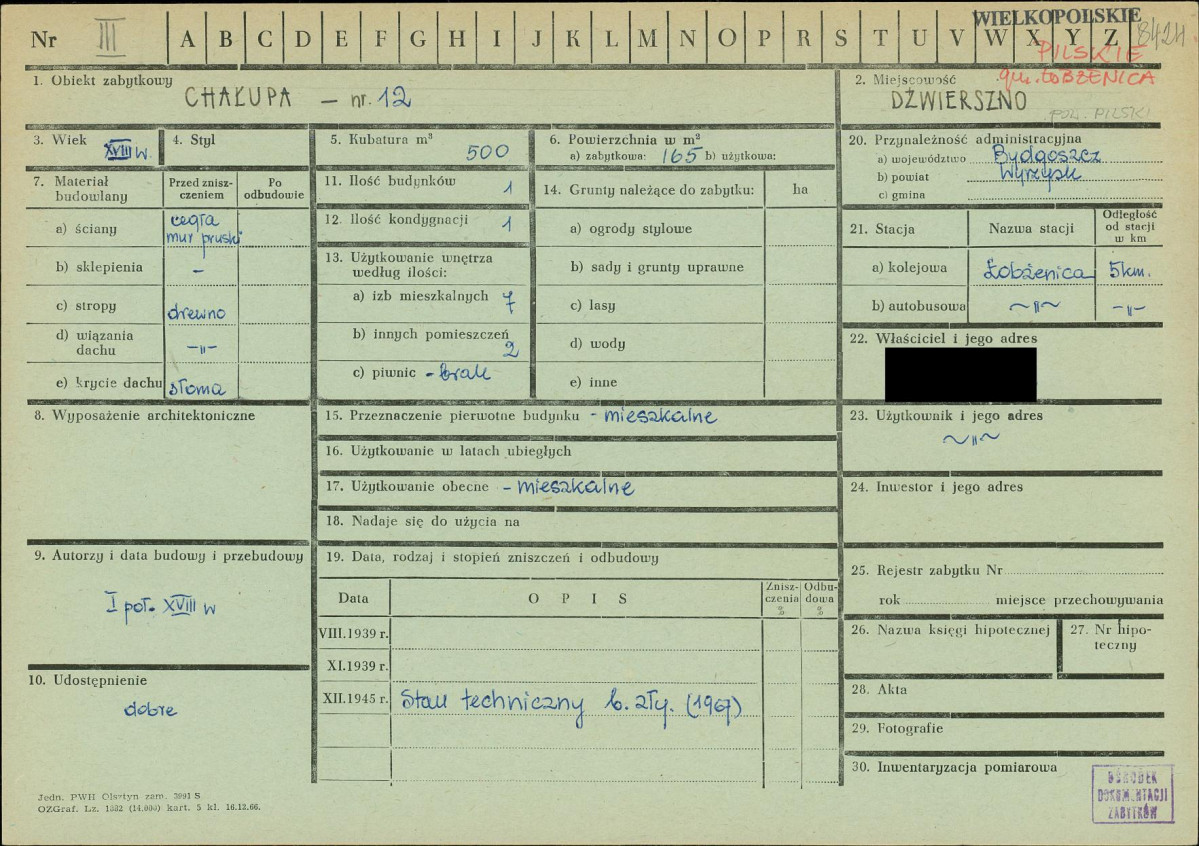 WIELKOPOLSKIE
Nr III A B C D E F G H I J K L M N O P R S T U V W X Y Z 8424
PILSKIE
gm. ŁOBŻENICA
1. Obiekt zabytkowy
CHAŁUPA – nr. 12
2. Miejscowość
DŹWIERSZNO
POW. PILSKI
3. Wiek
XVIII w.
4. Styl
5. Kubatura m³
500
6. Powierzchnia w m²
a) zabytkowa: 165 b) użytkowa:
20. Przynależność administracyjna
a) województwo Bydgoszcz
b) powiat Wyrzysk
c) gmina
7. Materiał budowlany
Przed zniszczeniem
Po odbudowie
a) ściany cegła
mur pruski
b) sklepienia –
c) stropy drewno
d) wiązania dachu –"–
e) krycie dachu słoma
11. Ilość budynków 1
12. Ilość kondygnacji 1
13. Użytkowanie wnętrza według ilości:
a) izb mieszkalnych 7
b) innych pomieszczeń 2
c) piwnic – brak
14. Grunty należące do zabytku: ha
a) ogrody stylowe
b) sady i grunty uprawne
c) lasy
d) wody
e) inne
21. Stacja
Nazwa stacji
Odległość od stacji w km
a) kolejowa Łobżenica 5 km.
b) autobusowa ~"~ –"–
22. Właściciel i jego adres
8. Wyposażenie architektoniczne
15. Przeznaczenie pierwotne budynku – mieszkalne
16. Użytkowanie w latach ubiegłych
17. Użytkowanie obecne – mieszkalne
18. Nadaje się do użycia na
23. Użytkownik i jego adres
~"~
24. Inwestor i jego adres
9. Autorzy i data budowy i przebudowy
I poł. XVIII w
19. Data, rodzaj i stopień zniszczeń i odbudowy
Data
O P I S
Zniszczenia %
Odbudowa %
VIII.1939 r.
XI.1939 r.
XII.1945 r. Stan techniczny b. zły. (1967)
10. Udostępnienie
dobre
25. Rejestr zabytku Nr
rok miejsce przechowywania
26. Nazwa księgi hipotecznej
27. Nr hipoteczny
28. Akta
29. Fotografie
30. Inwentaryzacja pomiarowa
OŚRODEK
DOKUMENTACJI
ZABYTKÓW
Jedn. PWH Olsztyn zam. 3991 S.
OZGraf. Lz. 1382 (14.000) kart. 5 kl. 16.12.66.